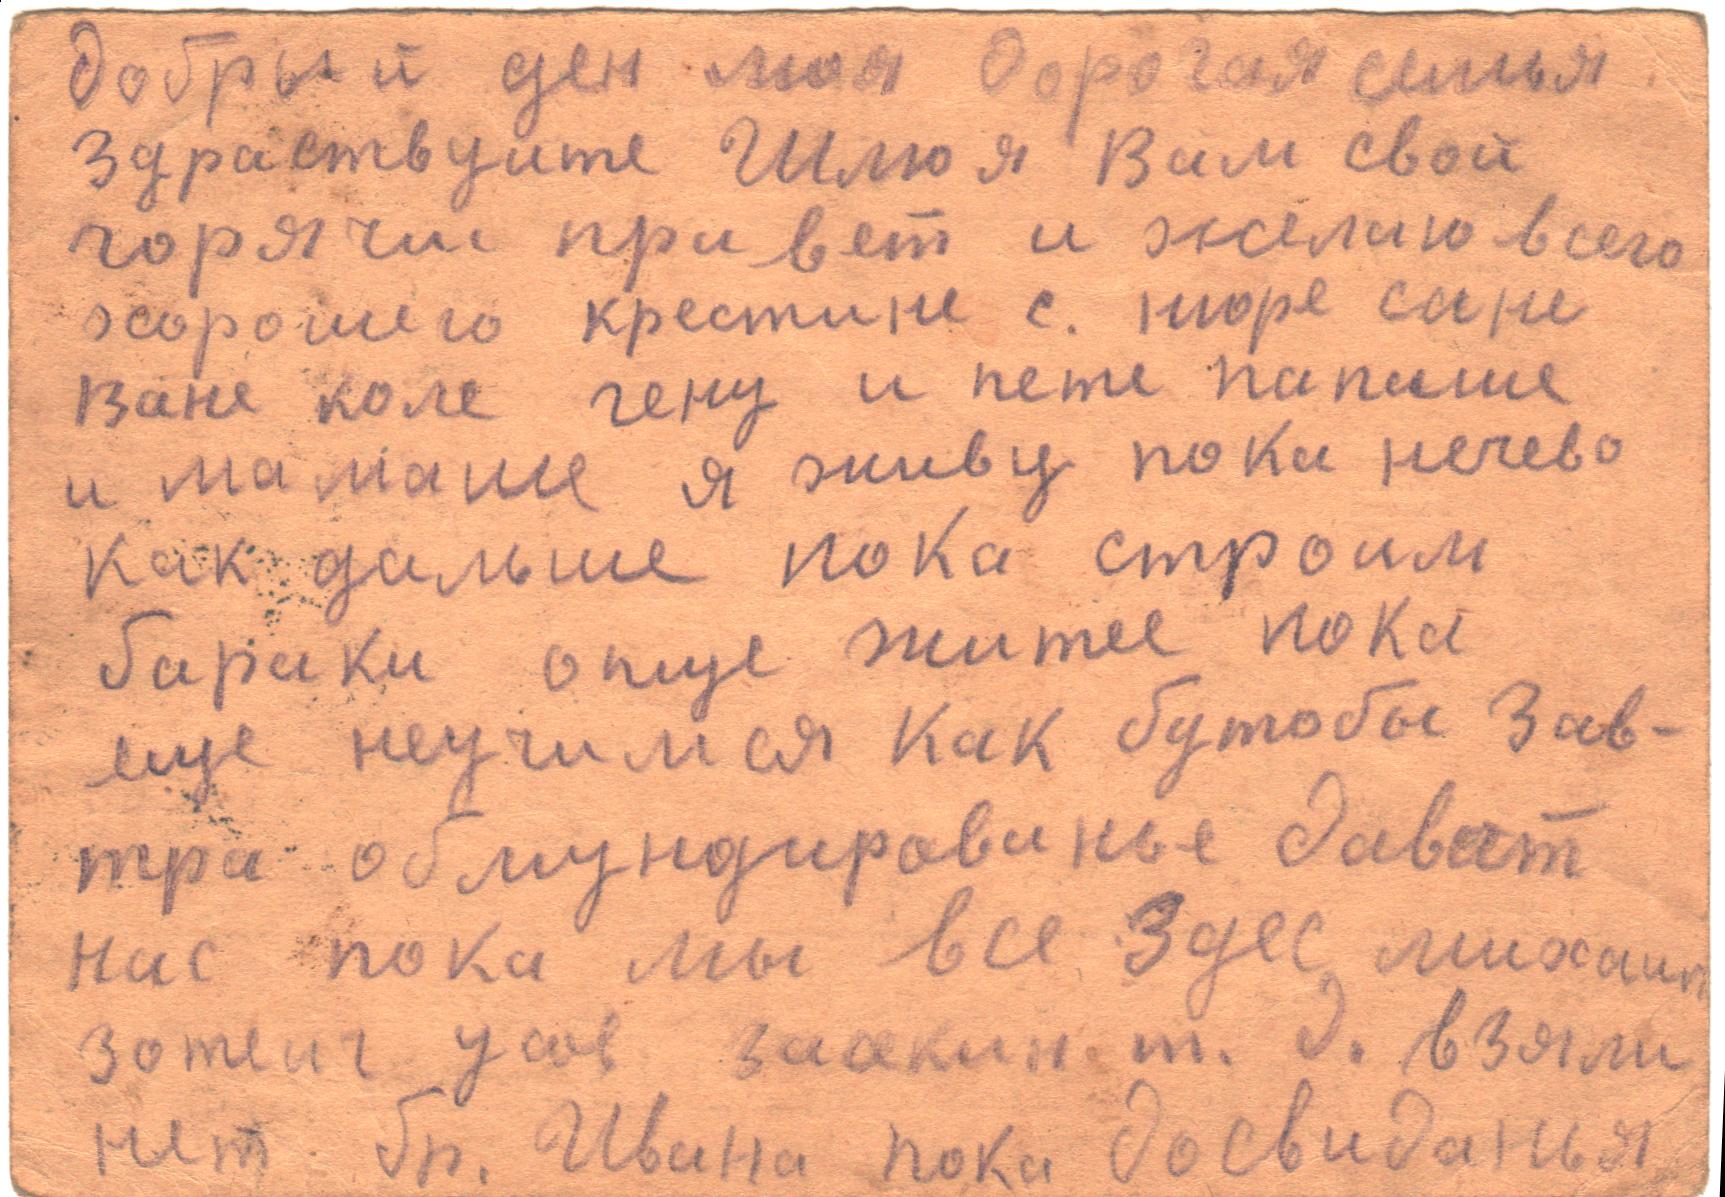 Добрый ден моя дорогая семья
Здраствуите Шлю я Вам свой
горячи привет и желаю всего
хорошего крестине с. нюре сане
Ване коле гену и пете папаше
и мамаше я живу пока нечево
как дальше пока строим
бараки опще житее пока
еще неучимся Как бутобы Зав-
тра обмундированье дават
нас пока мы все Здес михаил
зотеич усов т. д. взяли
нет бр. Ивана пока досвиданья